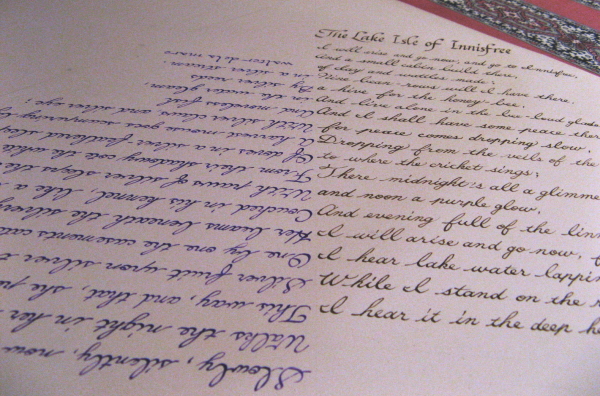 The Lake Isle of Innisfree
I will arise and go now, and go to Innisfree,
And a small cabin build there,
of clay and wattles made:
Nine bean-rows will I have there,
a hive for the honey-bee,
And live alone in the bee-loud glade
And I shall have some peace there
for peace comes dropping slow,
Dropping from the veils of the
to where the cricket sings;
There midnight's all a glimme
and noon a purple glow,
And evening full of the linn
I will arise and go now, f
I hear lake water lappin
While I stand on the
I hear it in the deep h
Slowly, silently, now
Walks the night in her
This way, and that, she
Silver fruit upon silver t
One by one the casements
Her beams beneath the silvery
Couched in his kennel, like a
With paws of silver sleeps the
From their shadowy cote the white
Of doves in a silver-feathered sleep
A harvest mouse goes scampering by
With silver claws and silver eye;
And moveless fish
in the water gleam
By silver reeds
in a silver stream.
walter de la mare